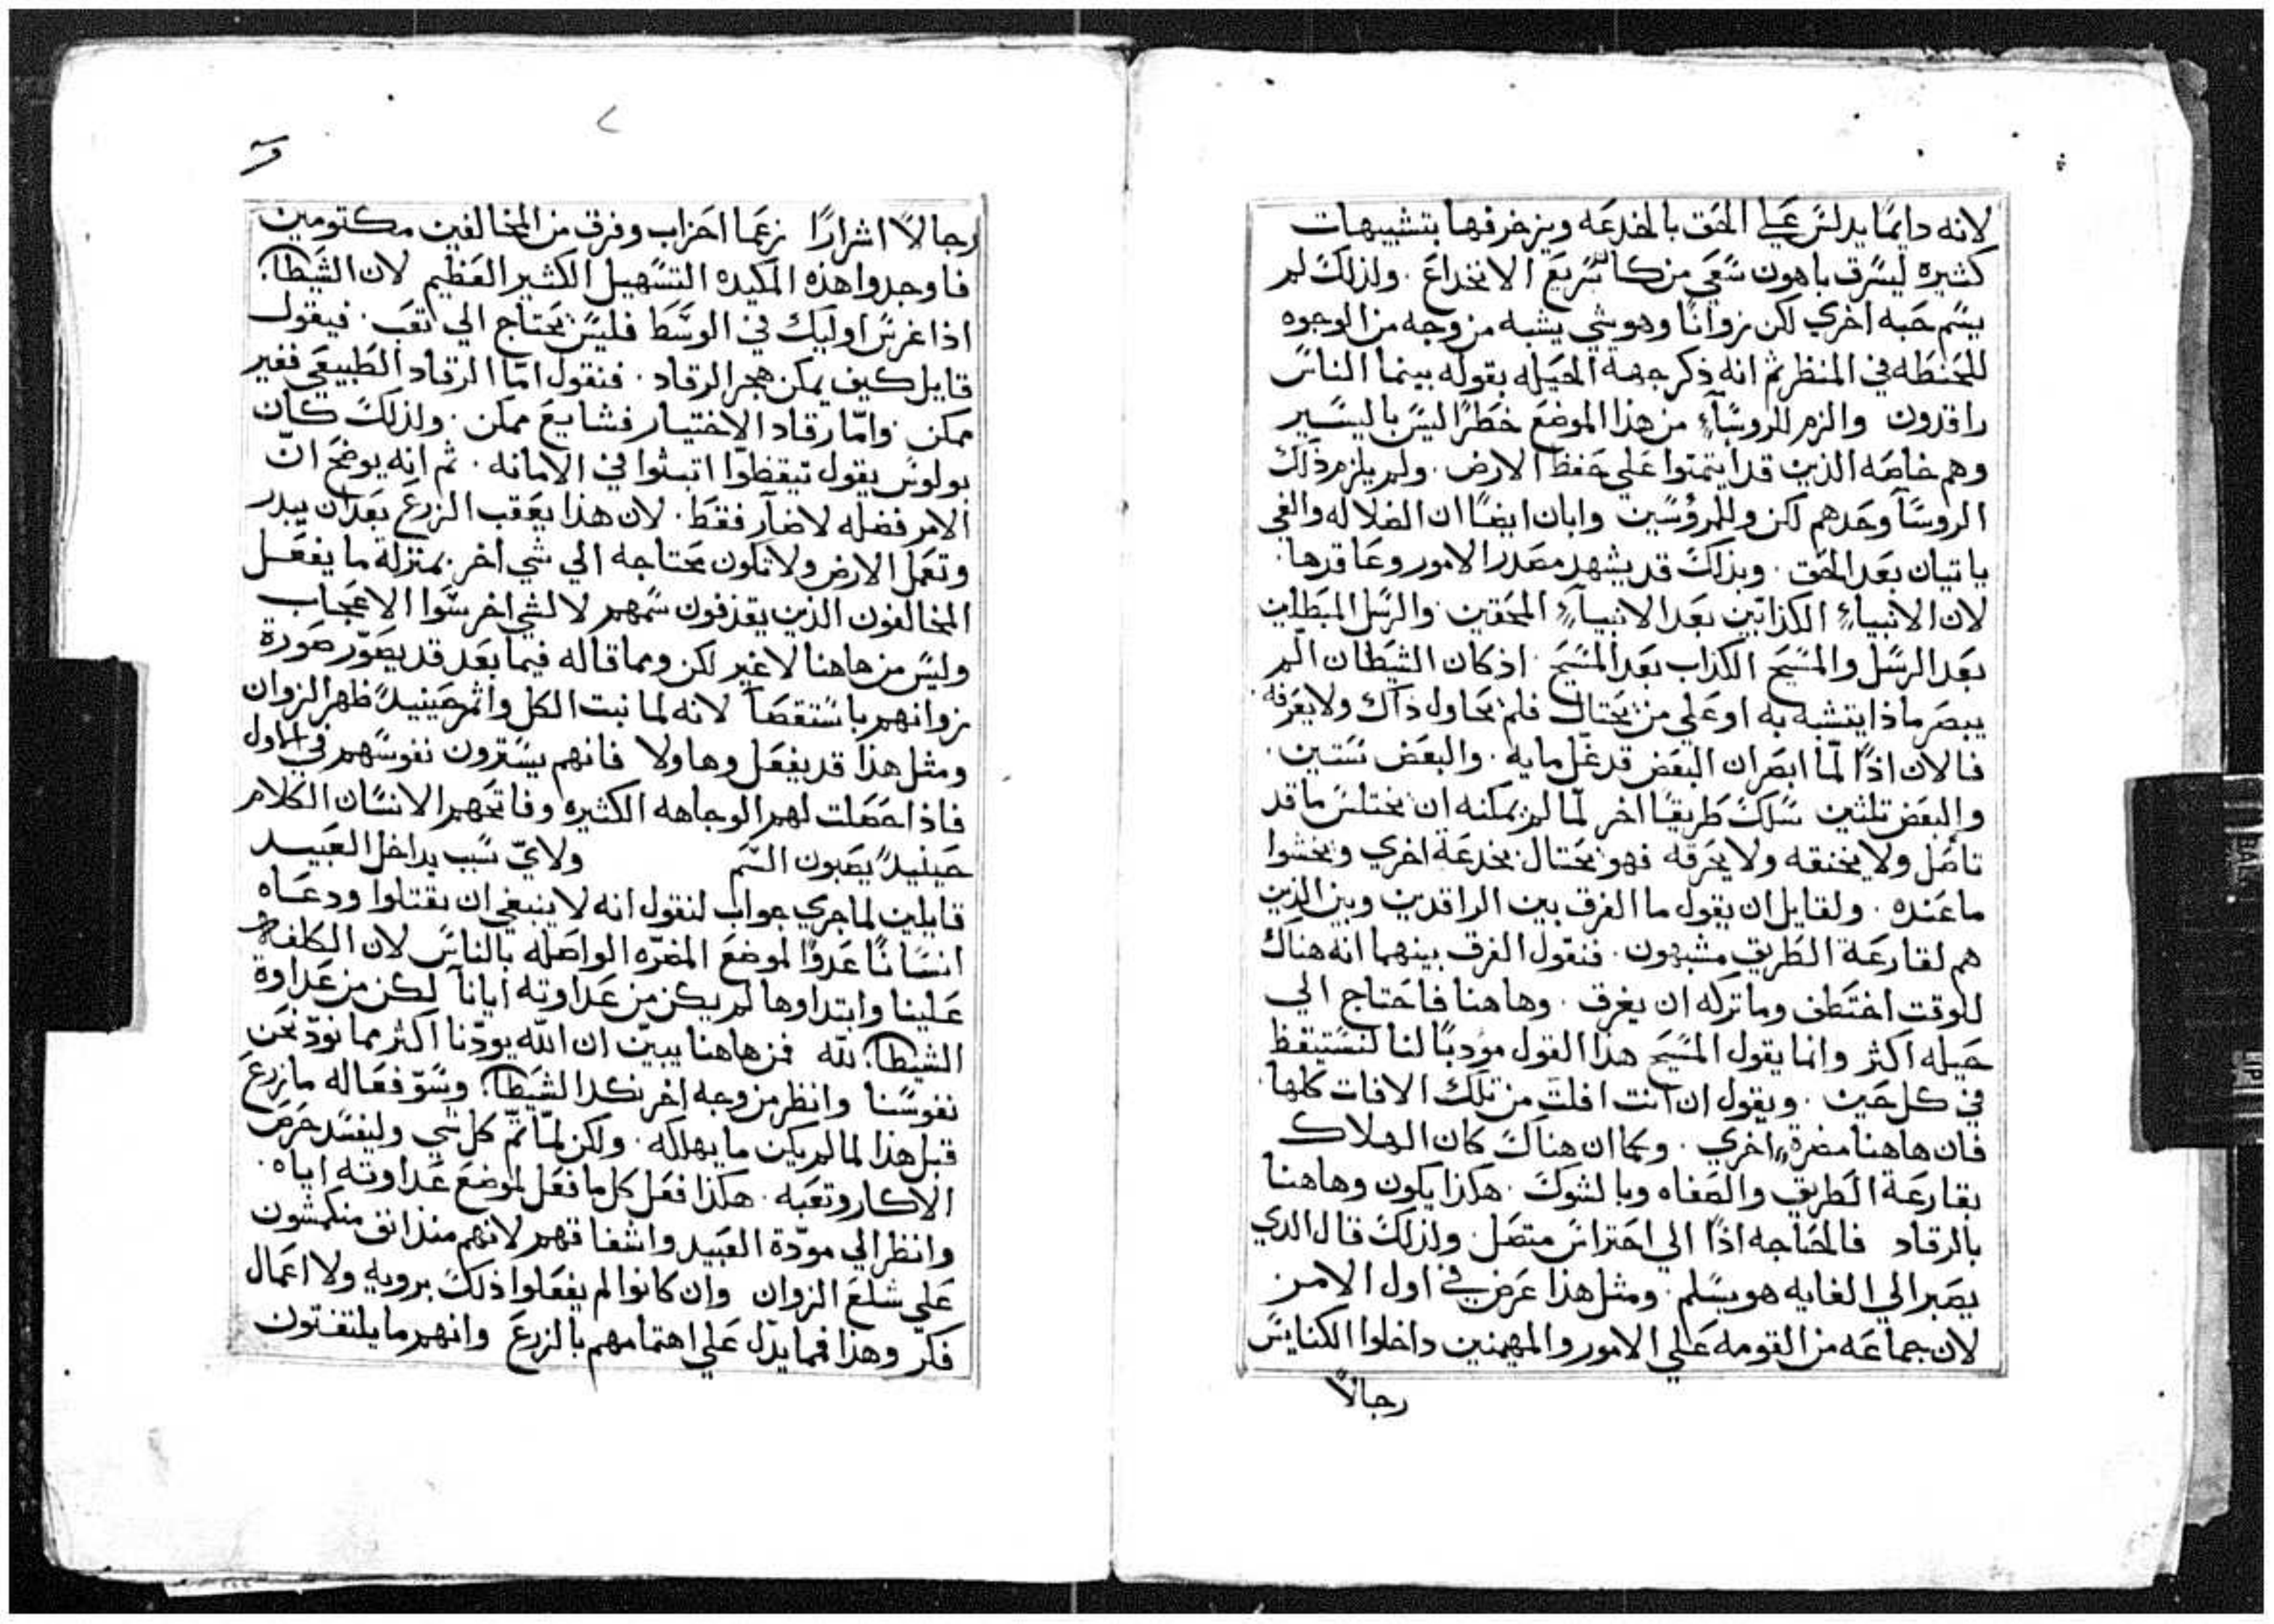 لانه دايمًا يدلسّ علي الحق بالخدعه ويزخرفها بتشبيهات
كثيره ليسرق باهون سعي من كان سريع الانخداع . ولذلك لم
يسم حبه اخري لكن زوانًا وهو شي يشبه من وجه من الوجوه
للحنطه في المنظر ثم انه ذكر جهة الحيله بقوله بينما الناس
راقدون والزم للروسآء من هذا الموضع خطرًا ليس باليسير
وهم خاصه الذين قد ايتمنوا علي حفظ الارض . ولم يلزم ذلك
الروسآ وحدهم لكن وللمرؤسين وابان ايضًا ان الضلاله والغي
ياتيان بعد الحق . وبذلك قد يشهد مصدر الامور وعاقدها .
لان الانبيآء الكذابين بعد الانبيآء المحقين . والرسل المبطلين
بعد الرسل والمسيح الكذاب بعد المسيح . اذ كان الشيطان الم
يبصر ماذا يتشبه به او علي من يحتال فلم يحاول ذاك ولا يعرفه .
فالان اذًا لمّا ابصر ان البعض قد غل مايه . والبعض ستين .
والبعض تلثين سلك طريقًا اخر لمّا لم يمكنه ان يختلس ما قد
تاصل ولا يخنقه ولا يحرقه فهو يحتال بخدعة اخري ويخشوا
ما عنده . ولقايل ان يقول ما الفرق بين الراقدين وبين الذين
هم لقارعة الطريق مشبهون . فنقول الفرق بينهما انه هناك
للوقت اختطف وما تركه ان يغرق . وهاهنا فاحتاج الي
حيله اكثر وانما يقول المسيح هذا القول مؤدبًا لنا لنستيقظ
في كل حين . ويقول ان انت افلت من تلك الافات كلها .
فان هاهنا مضرة اخري . وكما ان هناك كان الهلاك
بقارعة الطريق والصفاه وبالشوك . هكذا يكون وهاهنا
بالرقاد فالحاجه اذًا الي احتراس متصل . ولذلك قال الدي
يصبر الي الغايه هو يسلم . ومثل هذا عرض في اول الامر
لان جماعه من القومه علي الامور والمهيمنين داخلوا الكنايس
رجالاً
رجالاً اشرارًا زعما احزاب وفرق من المخالفين مكتومين
فاوجدوا هذه المكيده التسهيل الكثير العظيم لان الشيطان
اذا غرس اوليك في الوسط فليس يحتاج الي تعب . فيقول
قايل كيف يمكن هجر الرقاد . فنقول امّا الرقاد الطبيعي فغير
ممكن . وامّا رقاد الاختيار فشايع ممكن . ولذلك كان
بولوس يقول تيقظوا اتبثوا في الامانه . ثم انه يوضح انّ
الامر فضله لا ضآر فقط . لان هذا يعقب الزرع بعد ان يبدر
وتعمل الارض ولا تكون محتاجه الي شي اخر بمنزلة ما يفعل
المخالفون الذين يقذفون سمهم لا لشي اخر سوا الاعجاب
وليس من هاهنا لا غير لكن ومما قاله فيما بعد قد يصوّر صورة
زوانهم باستقصآ لانه لما نبت الكل واثمر حينيدً ظهر الزوان
ومثل هذا قد يفعل وهاولا فانهم يسترون نفوسهم في الاول
فاذا حصلت لهم الوجاهه الكثيره وفاتحهم الانسان الكلام
حينيدً يصبون السم ولايّ سبب يداخل العبيد
قايلين لما جري جواب لنقول انه لا ينبغي ان يقتلوا ودعاه
انسانًا عدوًا لموضع المضرّه الواصله بالناس لان الكلفه
علينا وابتداوها لم يكن من عداوته ايانا لكن من عداوة
الشيطان لله فمن هاهنا يبيّن ان الله يودّنا اكثر مما نودّ نحن
نفوسنا وانظر من وجه اخر نكد الشيطان وسوّ فعاله ما زرع
قبل هذا لما لم يكن ما يهلكه . ولكن لمّا تمّ كل شي وليفسد حرص
الاكار وتعبه . هكذا فعل كل ما فعل لموضع عداوته اياه .
وانظر الي مودّة العبيد واشفاقهم لانهم منذ انق منكمشون
علي شلع الزوان وان كانوا لم يفعلوا ذلك برويه ولا اعمال
فكر وهذا فما يدّل علي اهتمامهم بالزرع وانهم ما يلتفتون